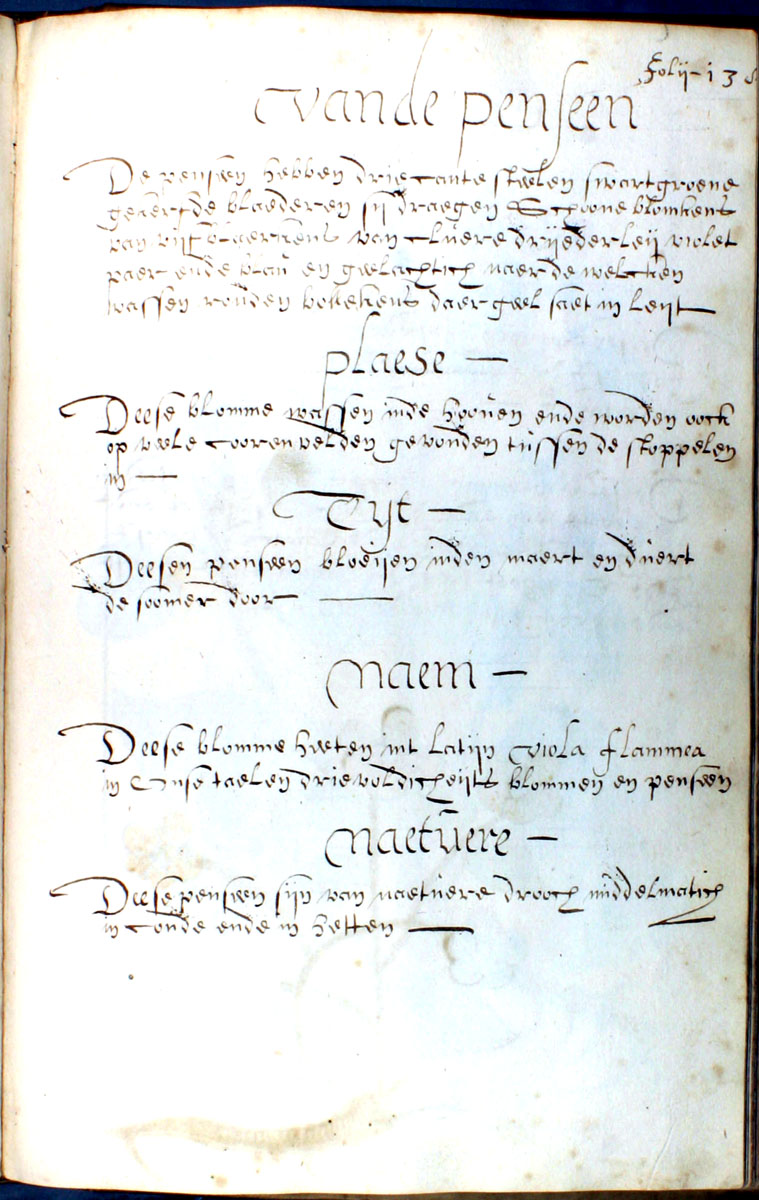 Folij - 13
vande penseen
De penseen hebben driecante steelen swartgroene
gekerfde blaederen sij draegen Schoone blomkens
van vijf blaerkens van cluere drijederleij violet
paer ende blau en geelachtich naer de welcken
wassen ronden bollekens daer geel saet in leijt
plaese
Deese blomme wassen inde hooven ende worden oock
op veele coorenvelden gevonden tussen de stoppelen
in
Tijt
Deesen penseen bloeijen inden maert en duert
de soomer door
Naem
Deese blomme heeten int latijn viola flammea
in Onse taelen drievoldicheijts blommen en penseen
Naetuere
Deese penseen sijn van naetuere drooch middelmatich
in coude ende in hetten